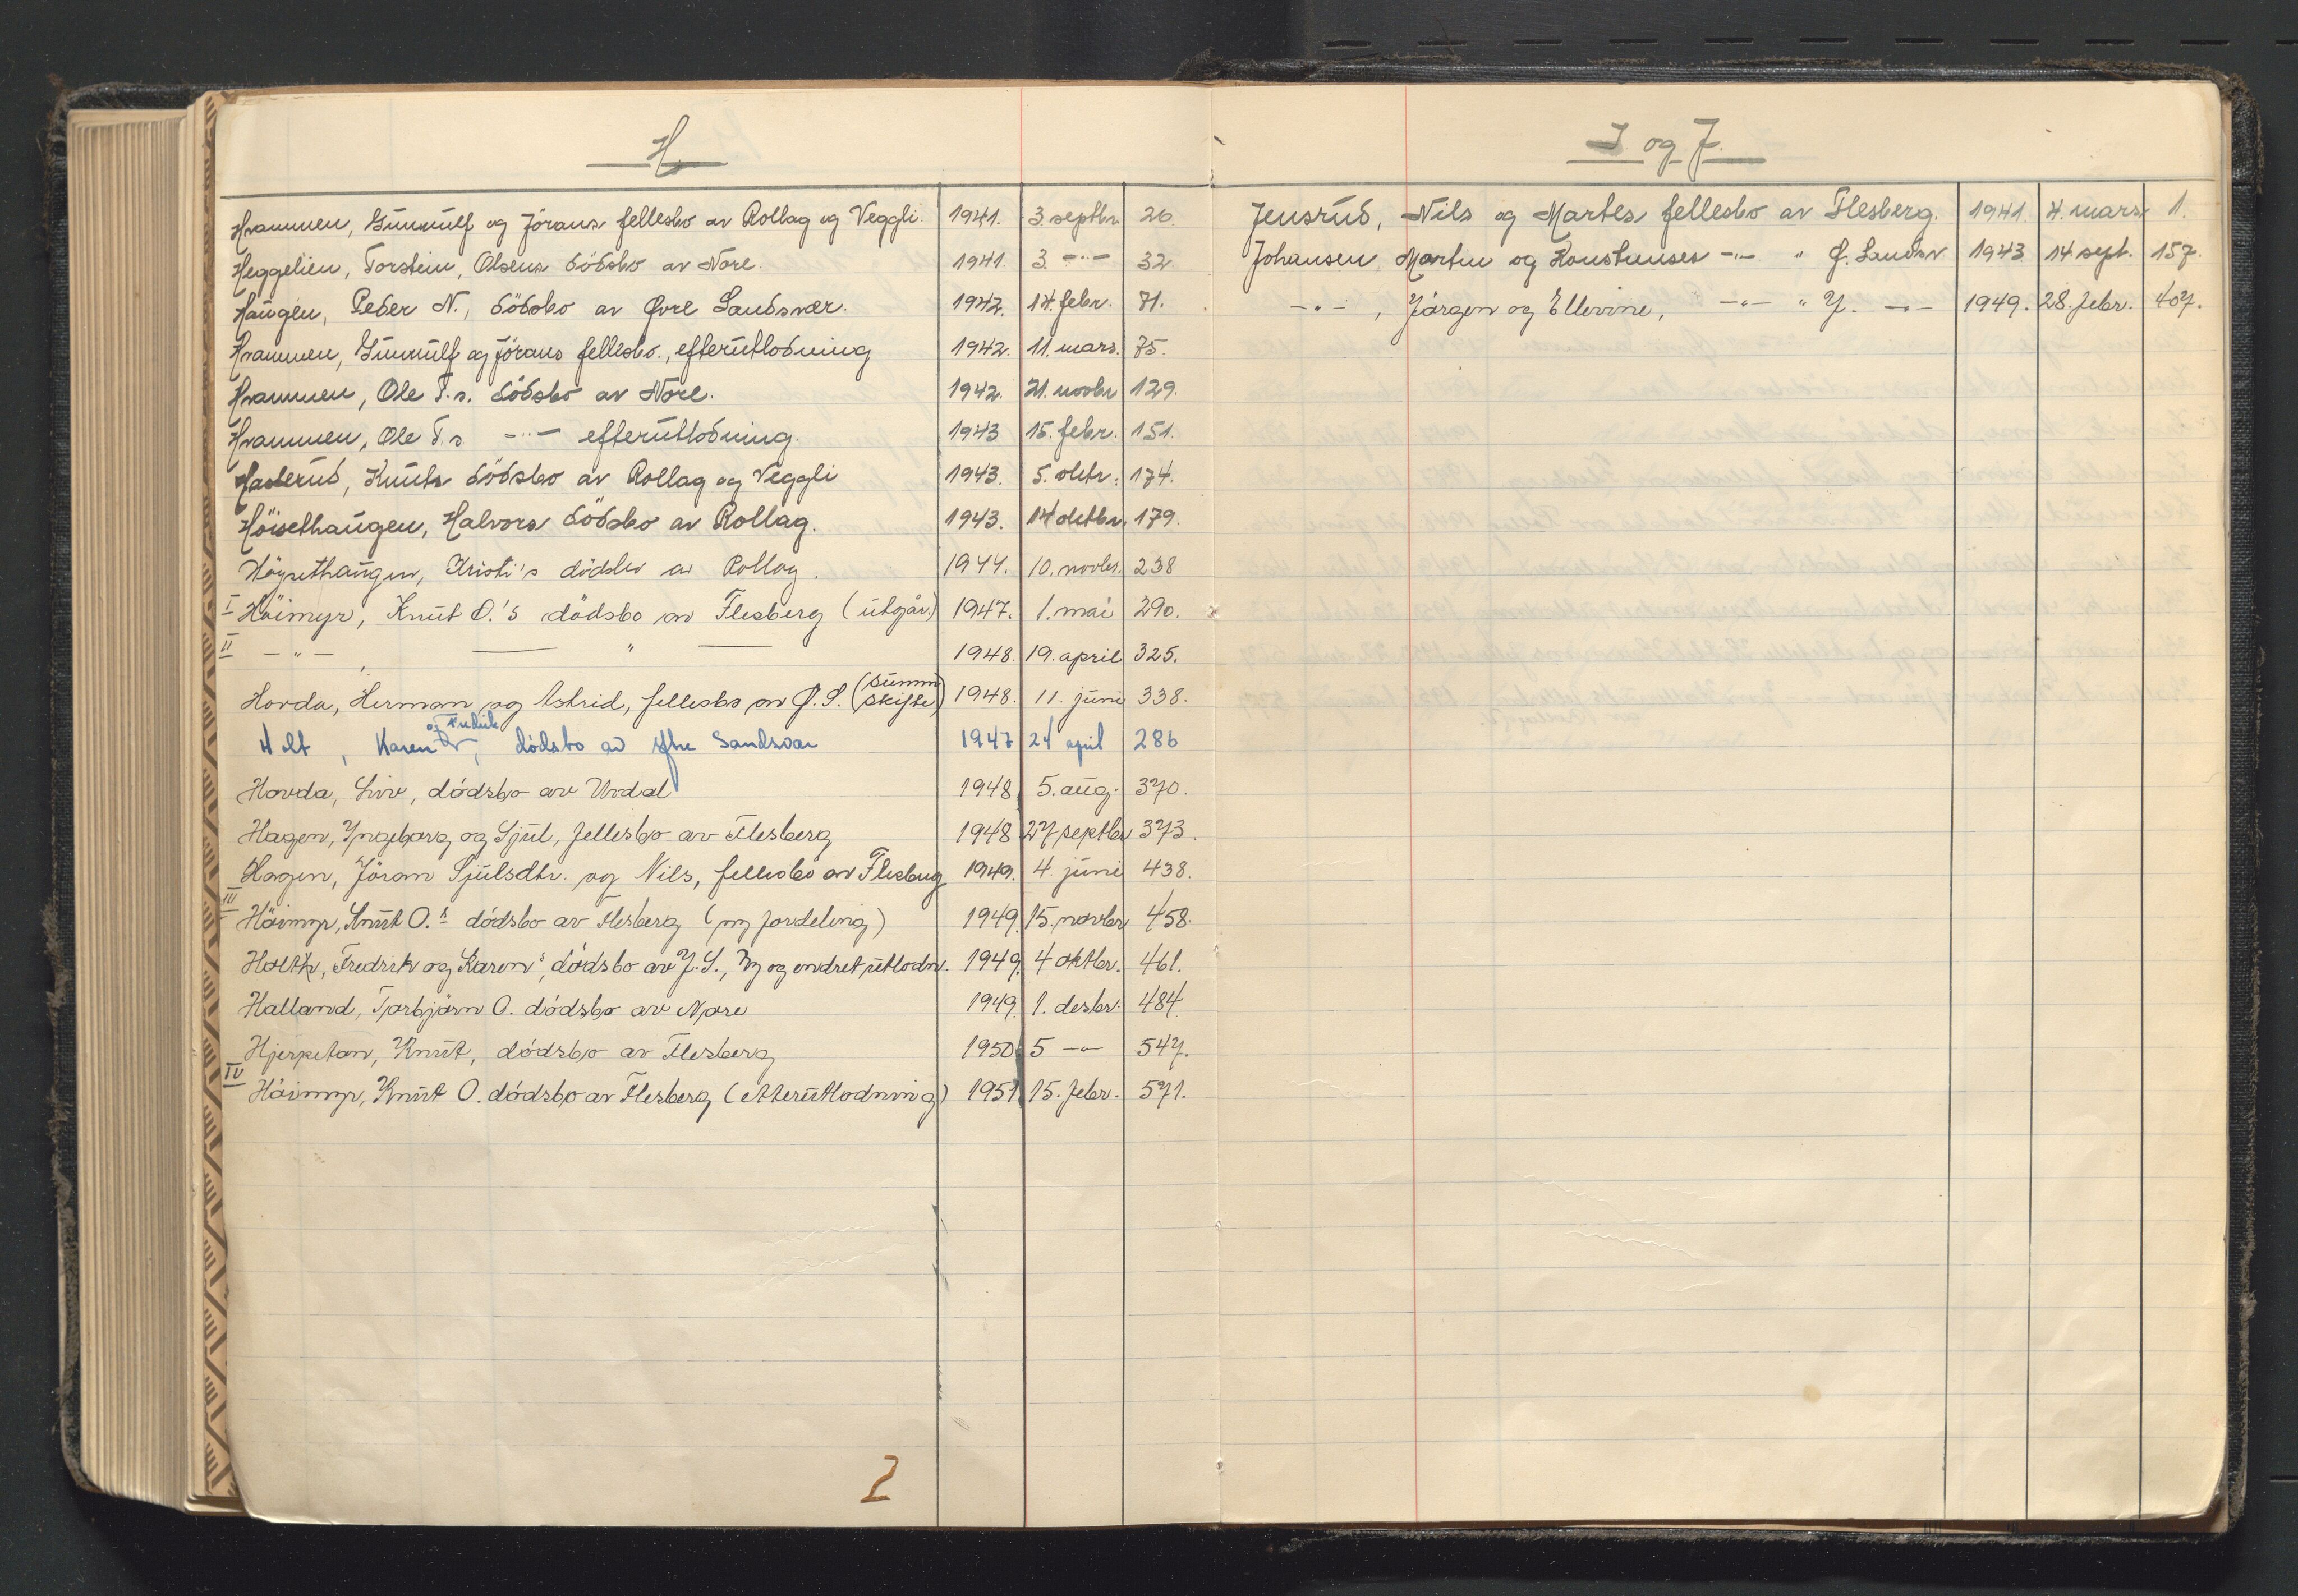 H.
Hvammen, Gunnulf og Jörans fellesbo av Rollag og Veggli. 1941. 3. septbr. 26.
Heggelien, Torstein, Olsens dödsbo av Nore. 1941. 3. -"- 32.
Haugen, Peder N., dödsbo av Øvre Sandsvær. 1942. 14. febr. 71.
Hvammen, Gunnulf og Jörans fellesbo., efterutlodning 1942. 11. mars. 75.
Hvammen, Ole T.s. dödsbo av Nore. 1942. 21. novbr 129.
Hvammen, Ole T.s -"- efterutlodning. 1943 15. febr. 151.
Knuts dödsbo av Rollag og Veggli 1943. 5. oktr. 174.
Höisethaugen, Halvors dödsbo av Rollag. 1943. 14 oktbr. 179.
Höysethaugen, Kristi's dödsbo av Rollag. 1944. 10. novbr. 238
I Höimyr, Knut O.'s dödsbo av Flesberg (utgår.) 1947. 1. mai 290.
II -"- — " — 1948. 19. april 325.
Hovda, Herman og Astrid, fellesbo av Ø. S. (summ. skifte) 1948. 11. juni 338.
Holt, Karen og Fredrik, dødsbo av Ytre Sandsvær 1947 24 april 286
Hovda, Liv, dódsbo av Uvdal 1948 5. aug. 370.
Hagen, Yngeborg og Sjul, fellesbo av Flesberg 1948 27 septbr 373.
Hagen, Jöran Sjulsdtr. og Nils, fellesbo av Flesberg 1949. 4. juni 438.
III Höimyr, Knut O.s dódsbo av Flesberg (ny fordeling) 1949. 15. novbr 458.
Holth, Fredrik og Karens, dódsbo av Y. S., Ny og endret utlodn. 1949. 4 oktbr. 461.
Halland, Torbjörn O. dódsbo av Nore 1949. 1. desbr. 484.
Hjerpetan, Knut, dódsbo av Flesberg 1950. 5 -"- 547.
IV Höimyr, Knut O. dódsbo av Flesberg (etterutlodning) 1951 15. febr. 571.
2
I og J.
Jensrud, Nils og Martes fellesbo av Flesberg. 1941. 4. mars 1.
Johansen, Martin og Konstanses -"- " Ø. Sandsv 1943. 14. sept. 157.
-"-, Jörgen og Ellevine, -"- " Y. -"- 1949. 28. febr. 407.